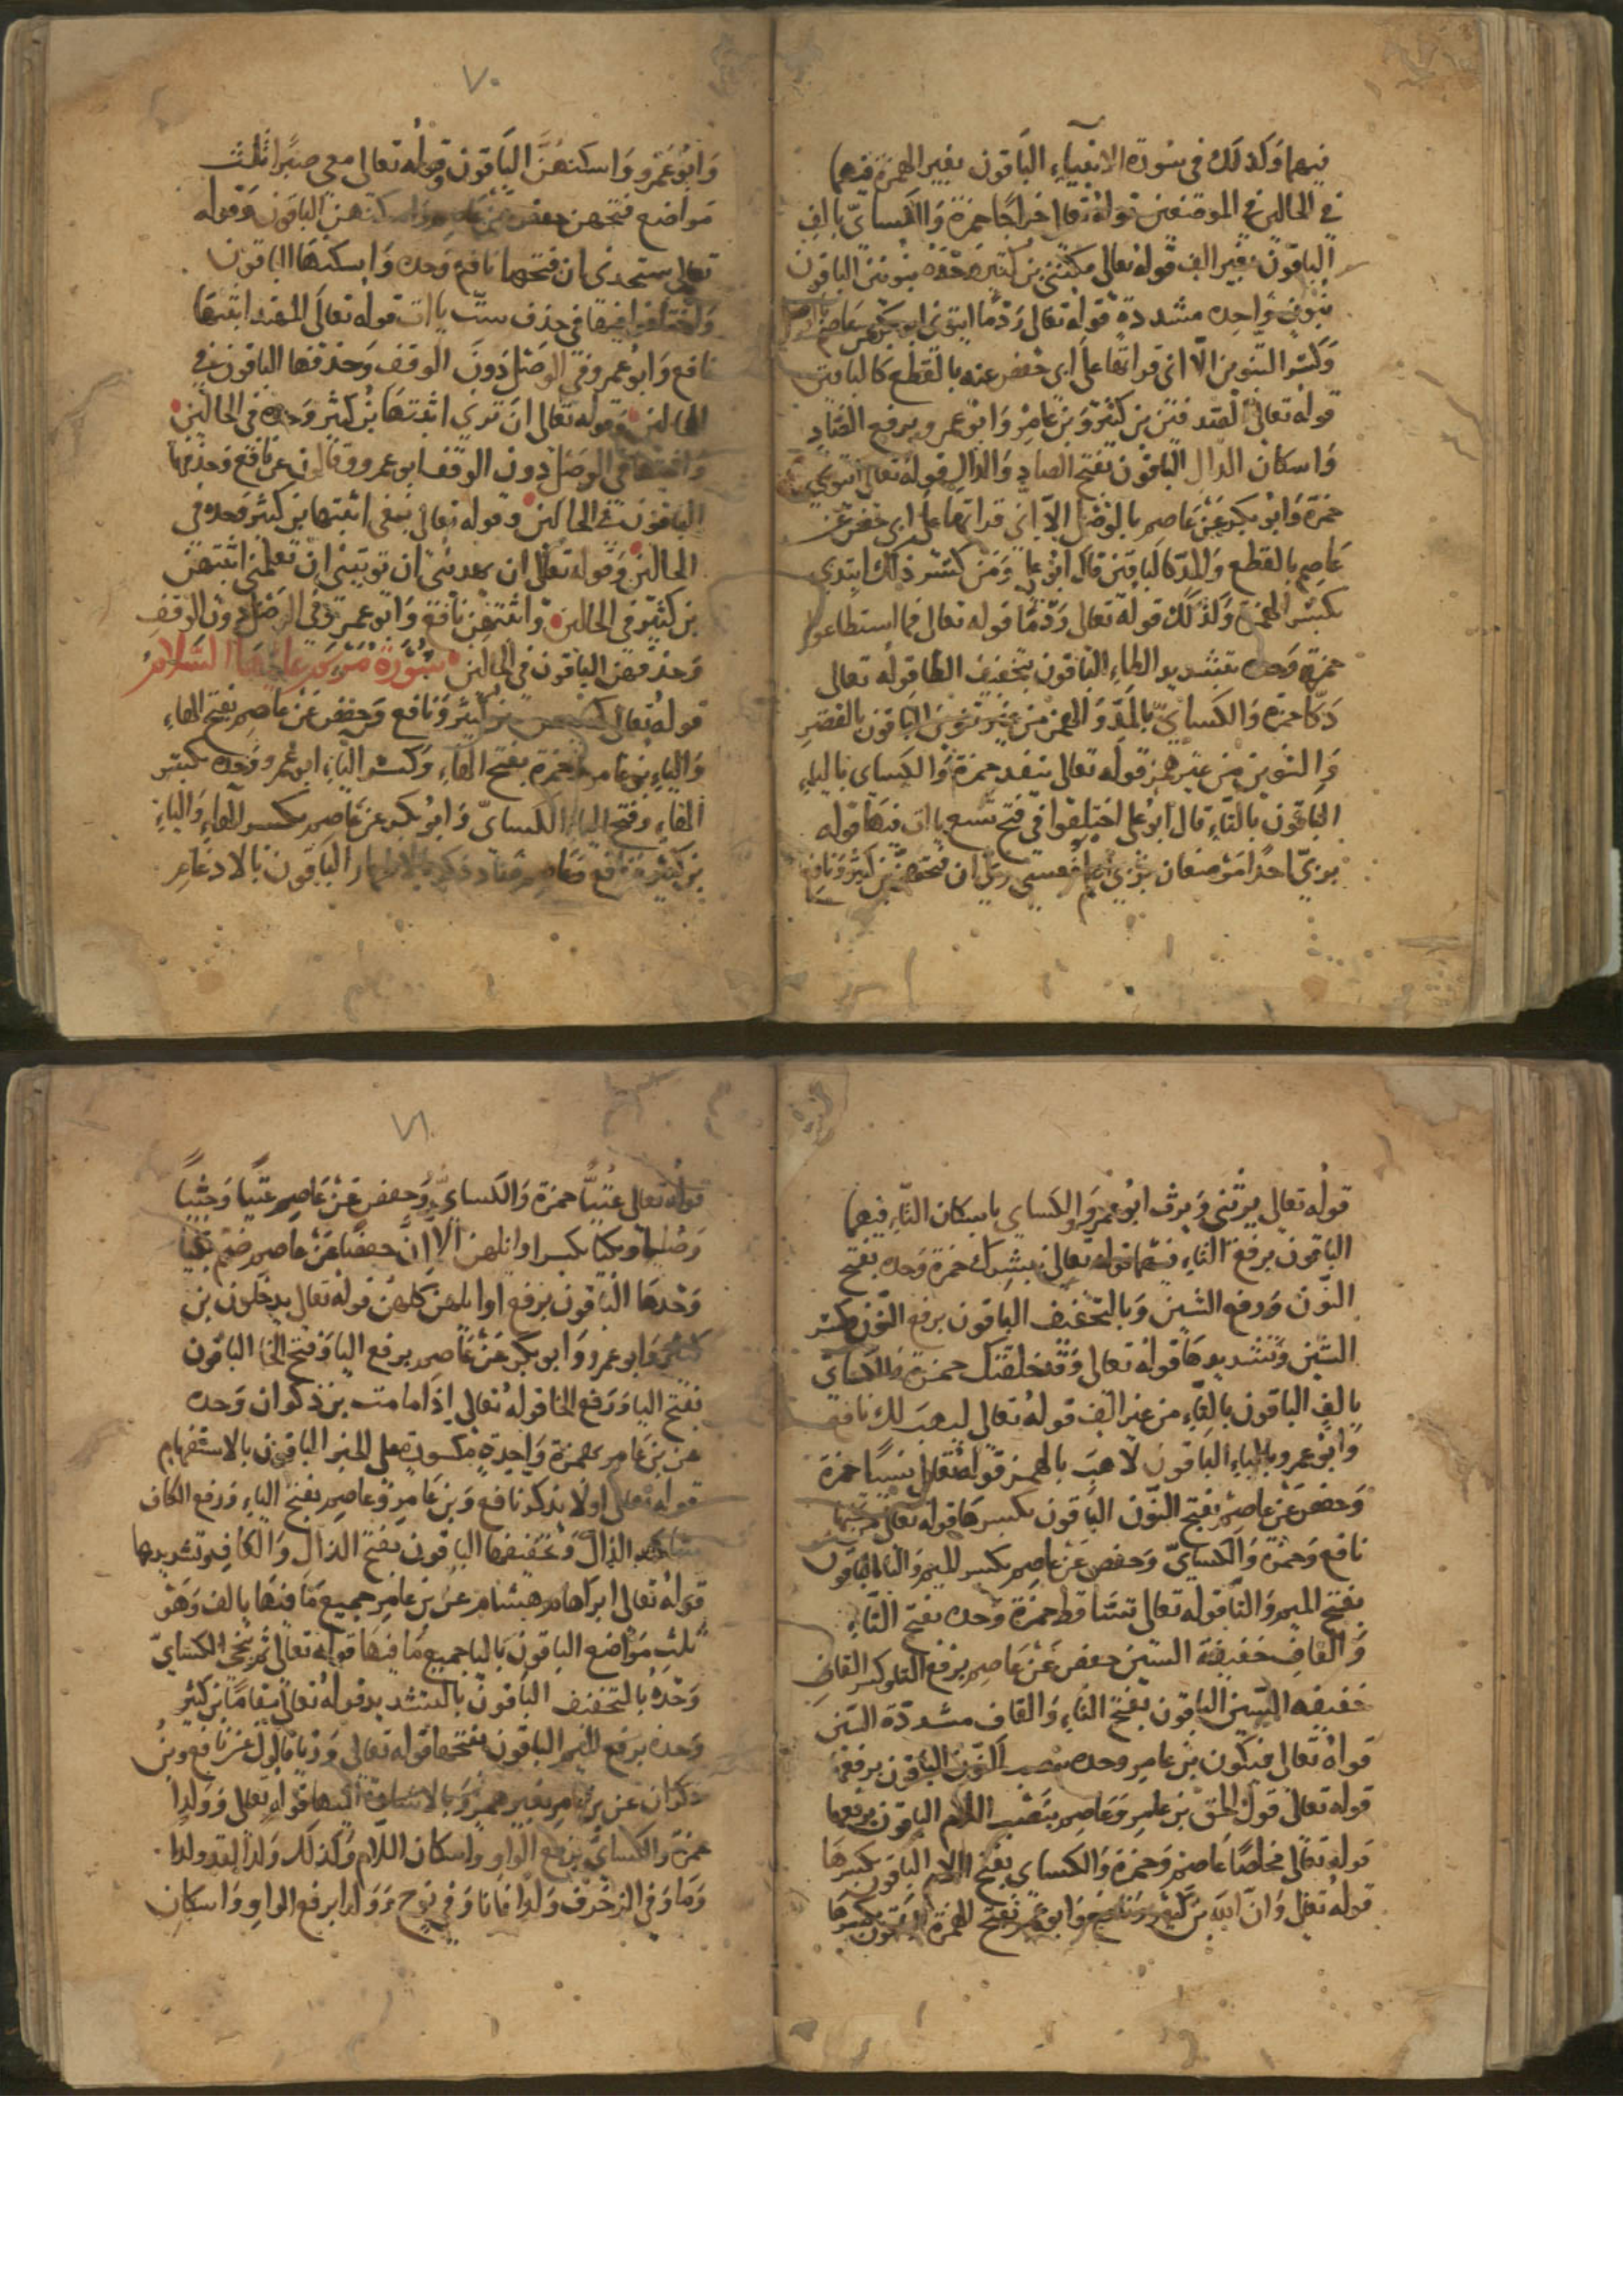 فيهما وكذلك في سورة الانبياء الباقون بغير الهمزة فيهما
في الحالين في الموضعين قوله تعالى خراجا حمزة والكسائي بالف
الباقون بغير الف قوله تعالى مكنني بن كثير وحده بنونين الباقون
بنون واحده مشددة قوله تعالى ردما ايتوني ابو بكر عن عاصم
وكسر التنوين الا اني قراتها على ابي حفص عنه بالقطع كالباقين
قوله تعالى الصدفين بن كثير وبن عامر وابو عمرو برفع الصاد
واسكان الدال الباقون بفتح الصاد والدال قوله تعالى ايتوني
حمزة وابو بكر عن عاصم بالوصل الا اني قراتها على ابي حفص عن
عاصم بالقطع والمد كالباقين قال ابو علي ومن كسر ذلك ابتدي
بكسر الهمزة وكذلك قوله تعالى ردما قوله تعالى فما استطاعوا
حمزة وحده بتشديد الطاء الباقون بتخفيف الطا قوله تعالى
دكا حمزة والكسائي بالمد والهمز من غير تنوين الباقون بالقصر
والتنوين من غير همز قوله تعالى ينفد حمزة والكساي بالياء
الباقون بالتاء قال ابو علي اختلفوا في فتح تسع ياات فيها قوله
بربي احدا موضعان ربي اعلم فعسى ربي ان فتحهن بن كثير ونافع
٧٠
وابو عمرو واسكنهن الباقون وقوله تعالى معي صبرا ثلث
مواضع فتحهن حفص عن عاصم واسكنهن الباقون وقوله
تعالى ستجدني ان فتحها نافع وحده واسكنها الباقون
واختلفوا فيها في حذف ست ياات قوله تعالى المهتد اثبتها
نافع وابو عمرو في الوصل دون الوقف وحذفها الباقون في
الحالين وقوله تعالى ان ترني اثبتها بن كثير وحده في الحالين
واثبتها في الوصل دون الوقف ابو عمرو وقالون عن نافع وحذفها
الباقون في الحالين وقوله تعالى نبغي اثبتها بن كثير وحده في
الحالين وقوله تعالى ان يهديني ان توتيني ان تعلمني اثبتهن
بن كثير في الحالين واثبتهن نافع وابو عمرو في الوصل دون الوقف
وحذفهن الباقون في الحالين سورة مريم عليها السلام
قوله تعالى كهيعص بن كثير ونافع وحفص عن عاصم بفتح الهاء
والياء بن عامر وحمزة بفتح الهاء وكسر الياء ابو عمرو وحده بكسر
الهاء وفتح الياء الكسائي وابو بكر عن عاصم بكسر الهاء والياء
بن كثير ونافع وعاصم صاد ذكر بالاظهار الباقون بالادغام
قوله تعالى يرثني ويرث ابو عمرو والكساي باسكان الثاء فيهما
الباقون برفع الثاء فيهما قوله تعالى نبشرك حمزة وحده بفتح
النون ورفع الشين وبالتخفيف الباقون برفع النون وكسر
الشين وتشديدها قوله تعالى وقد خلقنك حمزة والكسائي
بالف الباقون بالتاء من غير الف قوله تعالى ليهب لك نافع
وابو عمرو بالياء الباقون لاهب بالهمز قوله تعالى نسيا حمزة
وحفص عن عاصم بفتح النون الباقون بكسرها قوله تعالى من تحتها
نافع وحمزة والكسائي وحفص عن عاصم بكسر الميم والتا الباقون
بفتح الميم والتا قوله تعالى تساقط حمزة وحده بفتح التاء
والقاف خفيفة السين حفص عن عاصم برفع التاء وكسر القاف
خفيفه السين الباقون بفتح التاء والقاف مشددة السين
قوله تعالى فيكون بن عامر وحده بنصب النون الباقون برفعها
قوله تعالى قول الحق بن عامر وعاصم بنصب اللام الباقون برفعها
قوله تعالى مخلصا عاصم وحمزة والكساي بفتح اللام الباقون بكسرها
قوله تعالى وان الله بن كثير ونافع وابو عمرو بفتح الهمزة الباقون بكسرها
٧١
قوله تعالى عتيا حمزة والكسائي وحفص عن عاصم عتيا وجثيا
وصليا وبكيا بكسر اوائلهن الا ان حفصا عن عاصم ضم بكيا
وحدها الباقون برفع اوائلهن كلهن قوله تعالى يدخلون بن
كثير وابو عمرو وابو بكر عن عاصم برفع اليا وفتح الخا الباقون
بفتح اليا ورفع الخا قوله تعالى اذا ما مت بن ذكوان وحده
عن بن عامر بهمزة واحدة مكسورة على الخبر الباقون بالاستفهام
قوله تعالى اولا يذكر نافع وبن عامر وعاصم بفتح الياء ورفع الكاف
الذال وتخفيفها الباقون بفتح الذال والكاف وتشديدها
قوله تعالى ابراهام هشام عن بن عامر جميع ما فيها بالف وهو
ثلث مواضع الباقون باليا جميع ما فيها قوله تعالى ثم ننجي الكسائي
وحده بالتخفيف الباقون بالتشديد قوله تعالى مقاما بن كثير
وحده برفع الميم الباقون بفتحها قوله تعالى وريا قالون عن نافع وبن
ذكوان عن بن عامر بغير همز وبالاشارة اليها قوله تعالى وولدا
حمزة والكسائي برفع الواو واسكان اللام وكذلك ولدا لقد ولدا
وما وفي الزخرف ولدا فانا وفي نوح وولدا برفع الواو واسكان